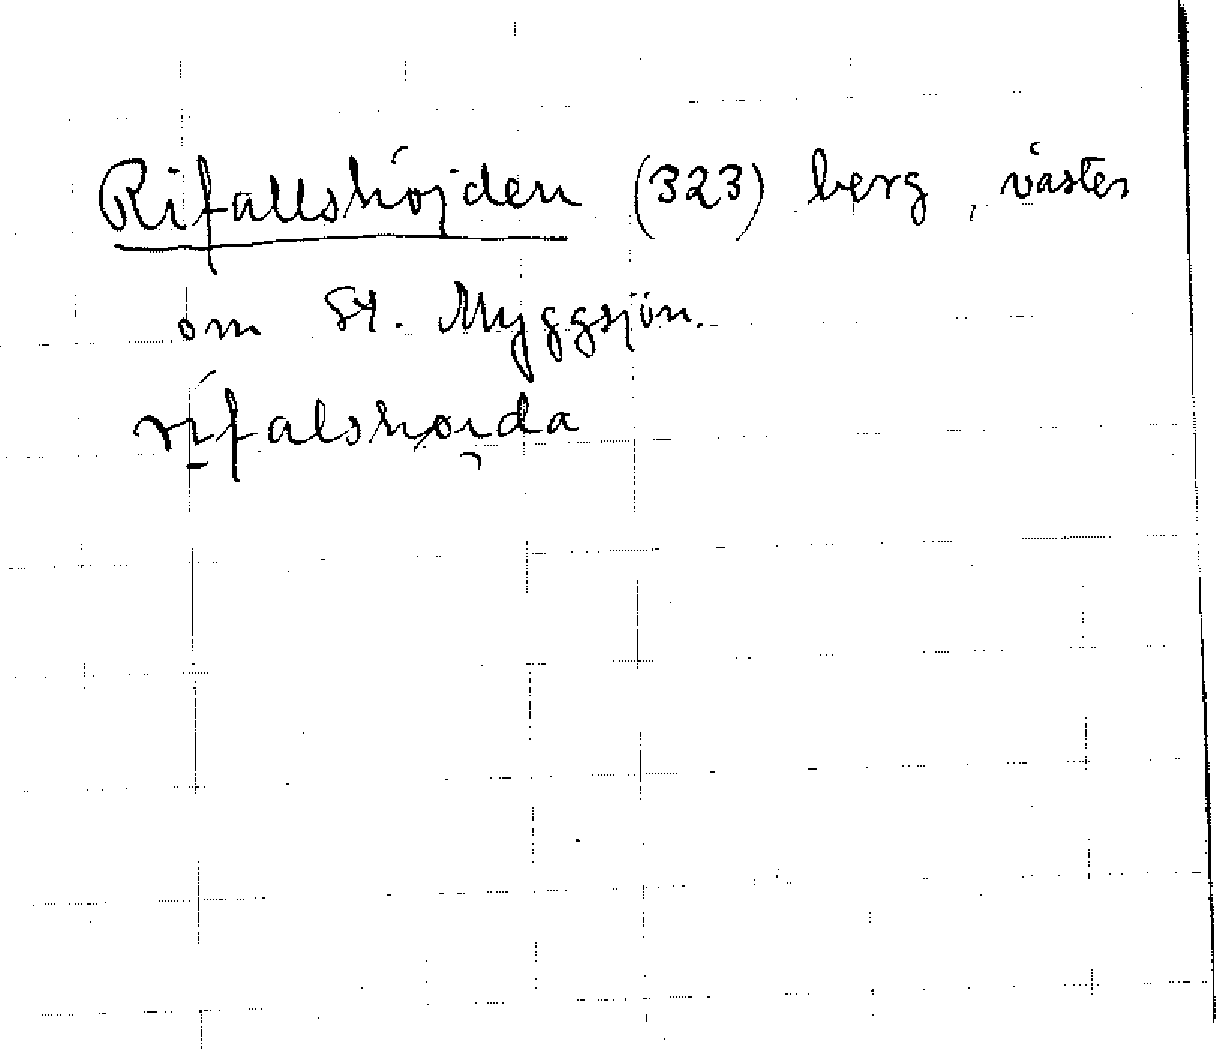 Rifallshöjden (323) berg, väster
om St. Myggsjön.
rifalshøi̯da